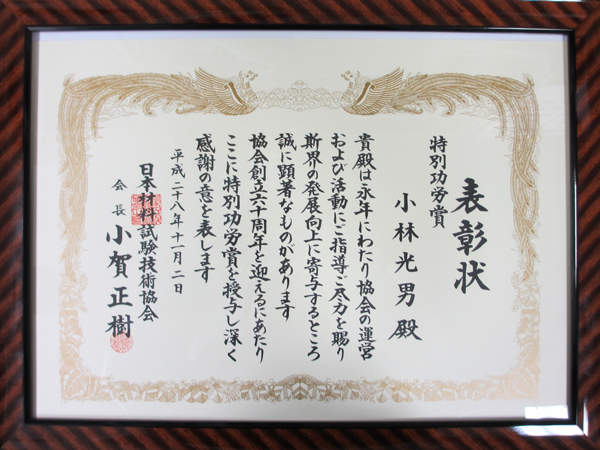 表彰状
特別功労賞
小林光男 殿
貴殿は永年にわたり協会の運営
および活動にご指導ご尽力を賜り
斯界の発展向上に寄与するところ
誠に顕著なものがあります
協会創立六十周年を迎えるにあたり
ここに特別功労賞を授与し深く
感謝の意を表します
平成二十八年十一月二日
日本材料試験技術協会
会長 小賀正樹